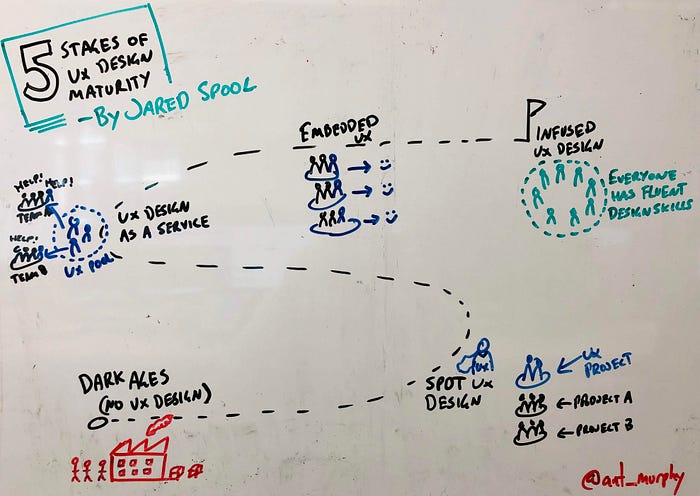 5 STAGES OF
UX DESIGN
MATURITY
- BY JARED SPOOL
EMBEDDED
UX
INFUSED
UX DESIGN
EVERYONE
HAS FLUENT
DESIGN SKILLS
HELP! HELP!
TEAM A
HELP!
TEAM B
UX POOL
UX DESIGN
AS A SERVICE
DARK AGES
(NO UX DESIGN)
UX
SPOT UX
DESIGN
UX
PROJECT
PROJECT A
PROJECT B
@ant_murphy